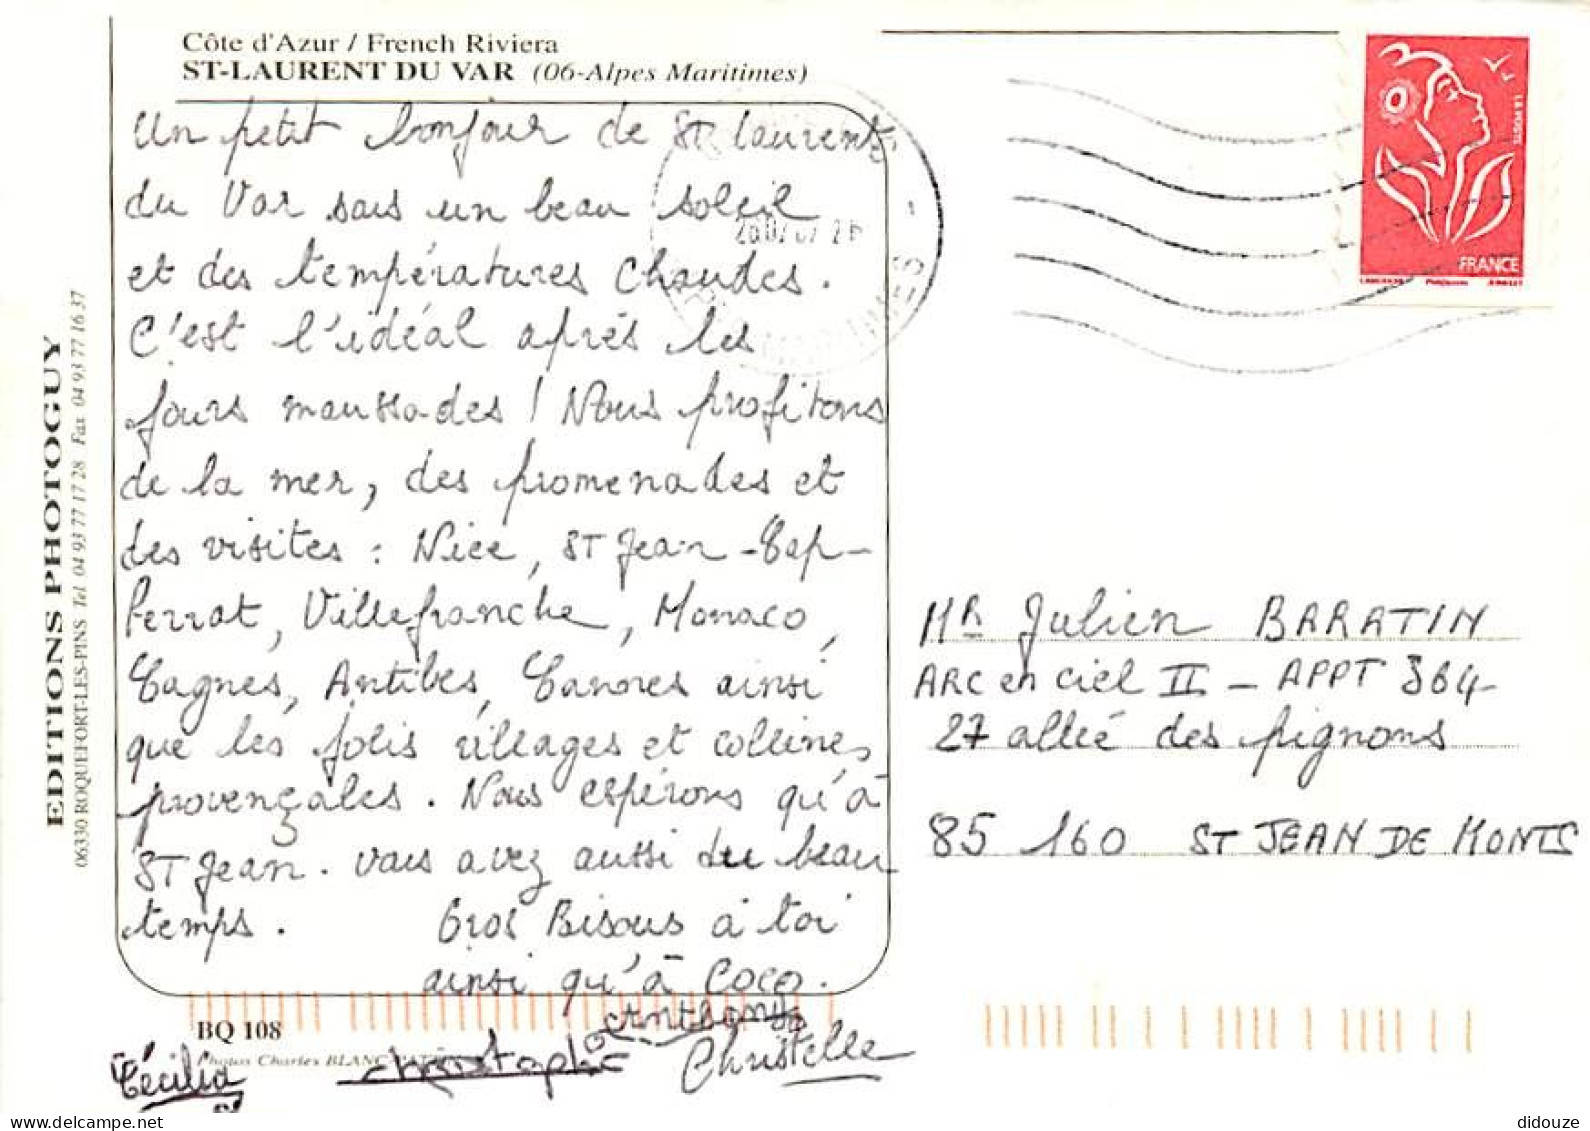 Côte d'Azur / French Riviera
ST-LAURENT DU VAR (06-Alpes Maritimes)
Un petit bonjour de St Laurent
du Var sous un beau soleil
et des températures chaudes.
C'est l'idéal après les
jours maussades ! Nous profitons
de la mer, des promenades et
des visites : Nice, St Jean-Cap-
Ferrat, Villefranche, Monaco,
Cagnes, Antibes, Cannes ainsi
que les jolis villages et collines
provençales. Nous espérons qu'à
St Jean. vous avez aussi du beau
temps. Gros Bisous à toi
ainsi qu'à Coco.
Anthony
Cécilia Christophe Christelle
BQ 108
Photos Charles BLANC
EDITIONS PHOTOGUY
06330 ROQUEFORT-LES-PINS Tel 04 93 77 17 28 Fax 04 93 77 16 37
LA POSTE
FRANCE
Mr Julien BARATIN
ARC en ciel II - APPT 364
27 allée des pignons
85 160 ST JEAN DE MONTS
didouze
delcampe.net